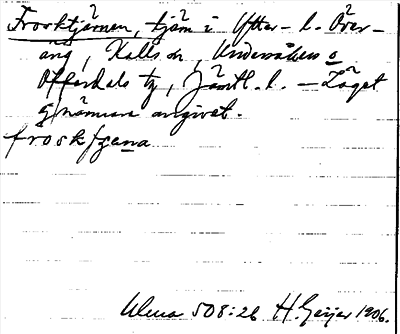 Frosktjärnen, tjärn i Ytter- l. Över-
äng, Kalls sn, Undersåkers o
Offerdals tg, Jämtl. l. — Läget
ej närmare angivet.
froskʃɛna
Ulma 508:26 H. Geijer 1906.